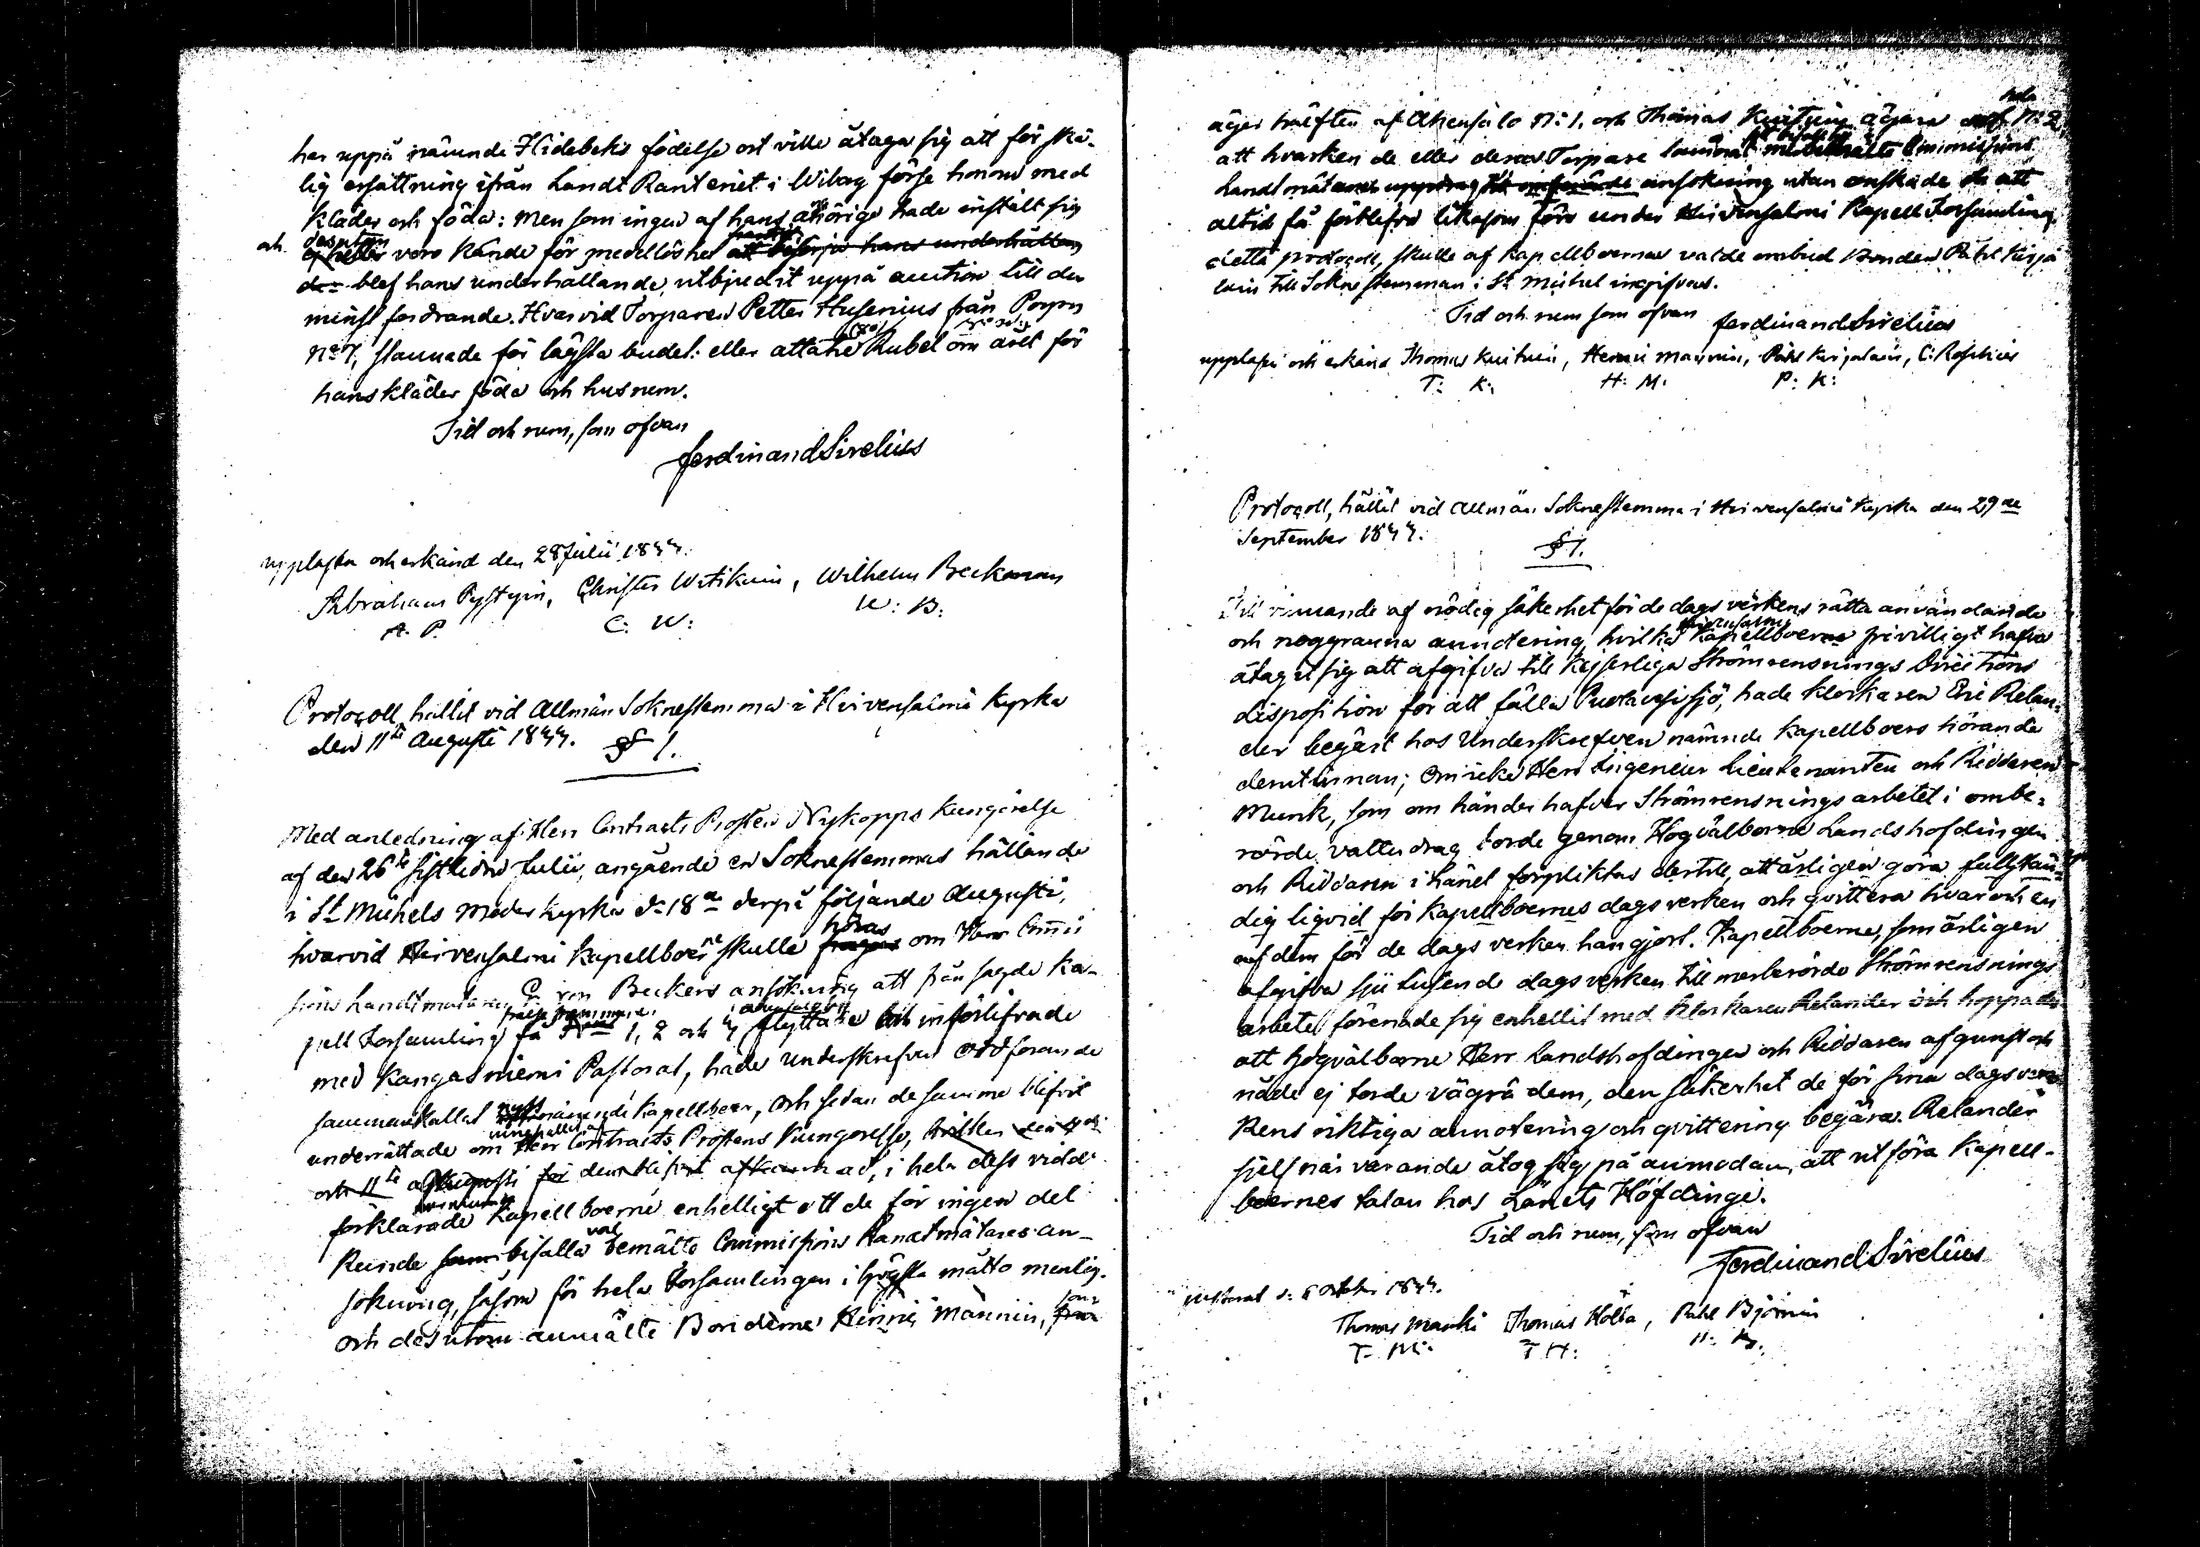 her uppå nämnde Hidebeks födelse ort ville åtaga sig att för skä-
lig ersättning ifrån Landt Ränteriet i Wiborg förse honom med
kläder och föda: men som ingen af hans anhörige hade instält sig
och dessutom ej heller voro kände för medellöshet att besörja hans underhållan
de blef hans underhållande utbjudit uppå auction till den
minst fordrande. Hvarvid Torparen Petter Husenius från Porrn
No 7, stannade för lägsta budet: eller attatie (80) Rubel om året för
hans kläder föda och husrum.
Tid och rum, som ofvan
Ferdinand Sirelius
upplästa och erkänd den 28 Julii 1844.
Abraham Pystynin, Christer Witikain, Wilhelm Beckman
A. P. C: W: W: B:
Protocoll hållit vid Allmän Soknestemma i Hirvensalmi kyrka
den 11te Augusti 1844. § 1.
Med anledning af Herr Contracts Prosten Nykopps kungörelse
af den 26te sistledne Julii, angående en Sokneskemmas hållande
i St Michels Moderkyrka dn 18de derpå följande Augusti,
hvarvid Hirvensalmi kapellboerne skulle höras frågas om Herr Commis
sions Landtmätaren C. von Beckers ansökning att från sagde Ka-
pell Församling få 1, 2 och 4 flyttade och införlifvade
med Kangasniemi Pastorat, hade Underskrefven ordförande
sammankallat nämnde kapellboer, och sedan desamme blifvit
underrättade om innehållet af Herr Contracts Prostens kungörelse, hvilken den 4 och
och 11te Augusti för dem blifvit afkunnad, i hela dess vidd
förklarade Kapellboerne enhelligt att de för ingen del
kunde bifalla bemälte Commissions Landtmätares an-
sökning, såsom för hela Församlingen i högsta måtto menlig.
och dessutom anmälte Bönderne Henric Männin, som
äger hälften af Ahensalo No 1. och Thomas Kuitunin ägare af hela No 2,
att hvarken de eller deras Torpare lämnat Commissions
Landtmätaren uppdrag till omförmälde ansökning utan önskade att
altid få förblifva likasom förr under Hirvensalmi Kapell Församling.
detta protocoll, skulle af kapellboernes valde ombud Bonden Påhl Kirja
lain till Soknestemman i St Michel ingifvas.
Tid och rum som ofvan Ferdinand Sirelius
uppläst och erkänd Thomas Kuitunin, Henric Mannin, Påhl Kirjalain, C: Roschier
T: K: H: M: P: K:
Protocoll, hållit vid Allmän Sokneskemma i Hirvensalmi Kyrka den 29de
September 1844. § 1.
Till vinnande af nödig säkerhet för de dagsverkens rätta användande
och noggranna annotering, hvilka Hirvensalmi Kapellboerne frivilligt hafva
åtagit sig att afgifva till Kejserliga Strömrensnings Directions
disposition för att fälla Puolavesi sjö, hade klockaren Eric Relan-
der begärt hos Underskrefven nämnde kapellboers hörande
derutinnan; om icke Herr Ingenieur Lieutenanten och Riddaren
Munk, som om händer hafver Strömrensnings arbetet i ombe-
rörde vattudrag torde genom Högvälborne Landshöfdingen
och Riddaren i Länet förpliktas dertill, att årligen göra fullstän-
dig liqvid för Kapellboernes dagsverken och qvittera hvar och en
af dem för de dagsverken han gjort. Kapellboerne, som årligen
afgifva sju tusende dagsverken till merberörde Strömrensnings
arbetet, förenade sig enhelligt med klockaren Relander och hoppades
att högvälborne Herr Landshöfdingen och Riddaren af gunst och
nåde ej torde vägra dem, den säkerhet de för sina dagsver-
kens riktiga annotering och qvittering begära. Relander
sjelf närvarande åtog sig på anmodan, att utföra Kapell-
boernes talan hos Länets Höfdinge.
Tid och rum, som ofvan
Ferdinand Sirelius
justerat d: 6 October 1844.
Thomas Manki Thomas Hölta, Påhl Björnin
T. M: T H: